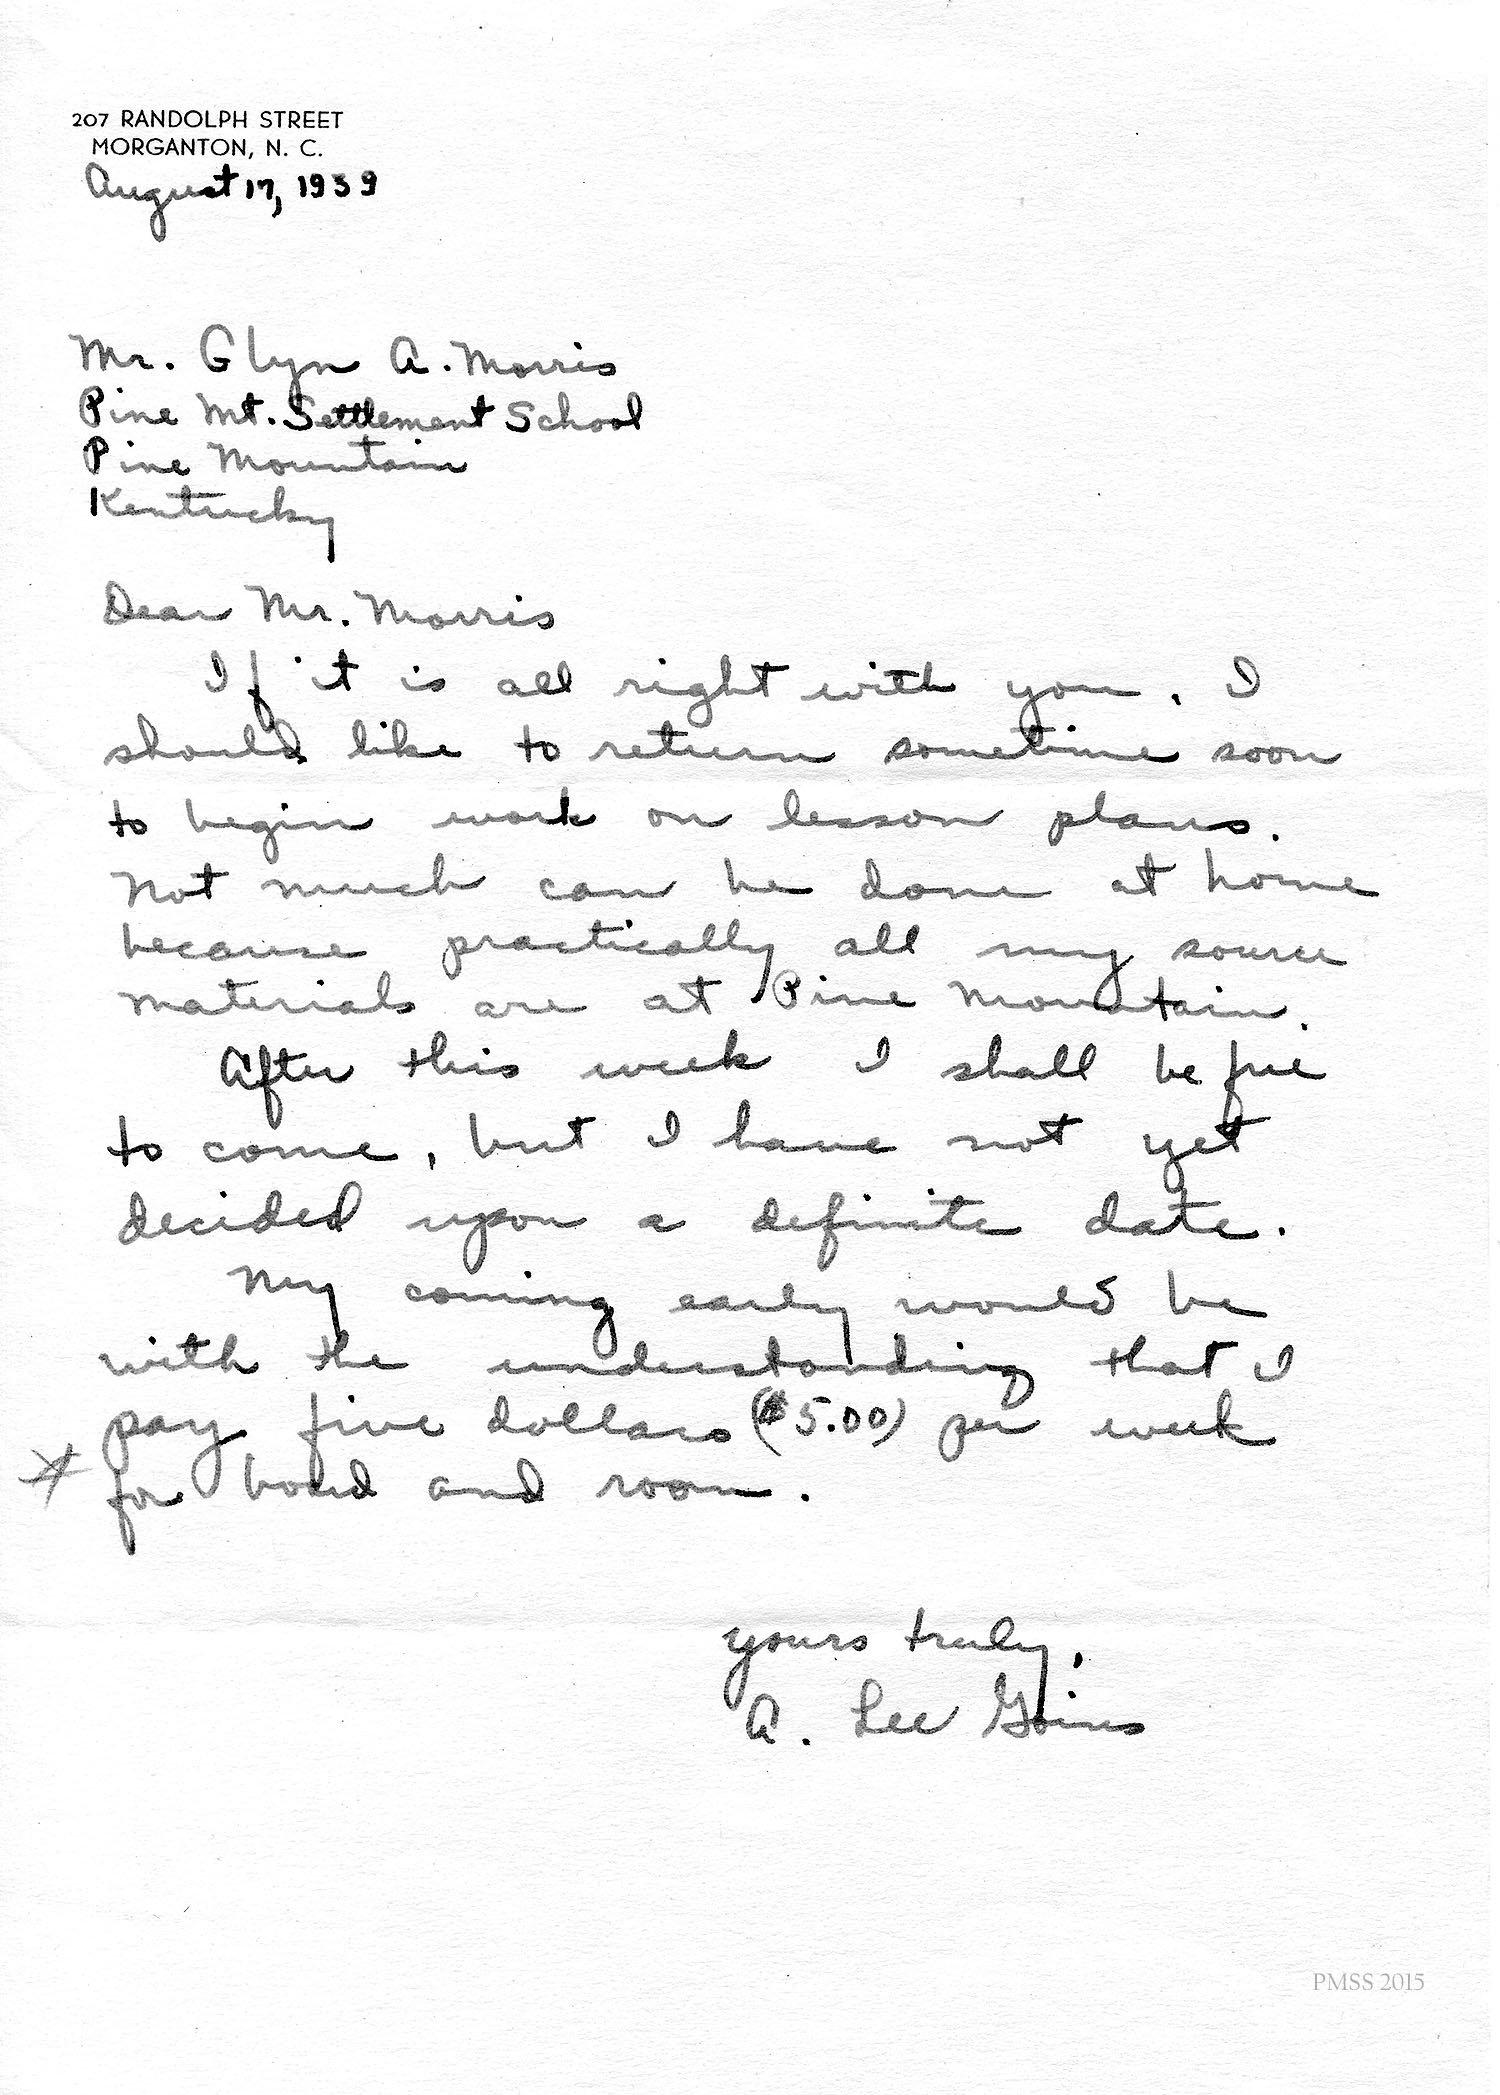 207 RANDOLPH STREET
MORGANTON, N. C.
August 17, 1939
Mr. Glyn A. Morris
Pine Mt. Settlement School
Pine Mountain
Kentucky
Dear Mr. Morris
If it is all right with you, I
should like to return sometime soon
to begin work on lesson plans.
Not much can be done at home
because practically all my source
materials are at Pine Mountain.
After this week I shall be free
to come, but I have not yet
decided upon a definite date.
My coming early would be
with the understanding that I
pay five dollars ($5.00) per week
for board and room.
yours truly,
A. Lee Goins
PMSS 2015